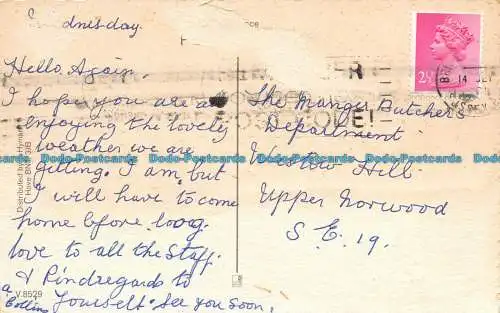 dnesday
Hello, Again.
I hope you are all
enjoying the lovely
weather we are
getting. I am but
I will have to come
home before long
love to all the Staff.
& Kindregards to
Yourself. See you soon,
a
Collins
V.8529
Distributed by
Hove BN
The Manger Butcher's
Department
Westow Hill
Upper Norwood
S.E.19.
2½
14
Dodo-Postcards Dodo-Postcards Dodo-Postcards Dodo-Postcards